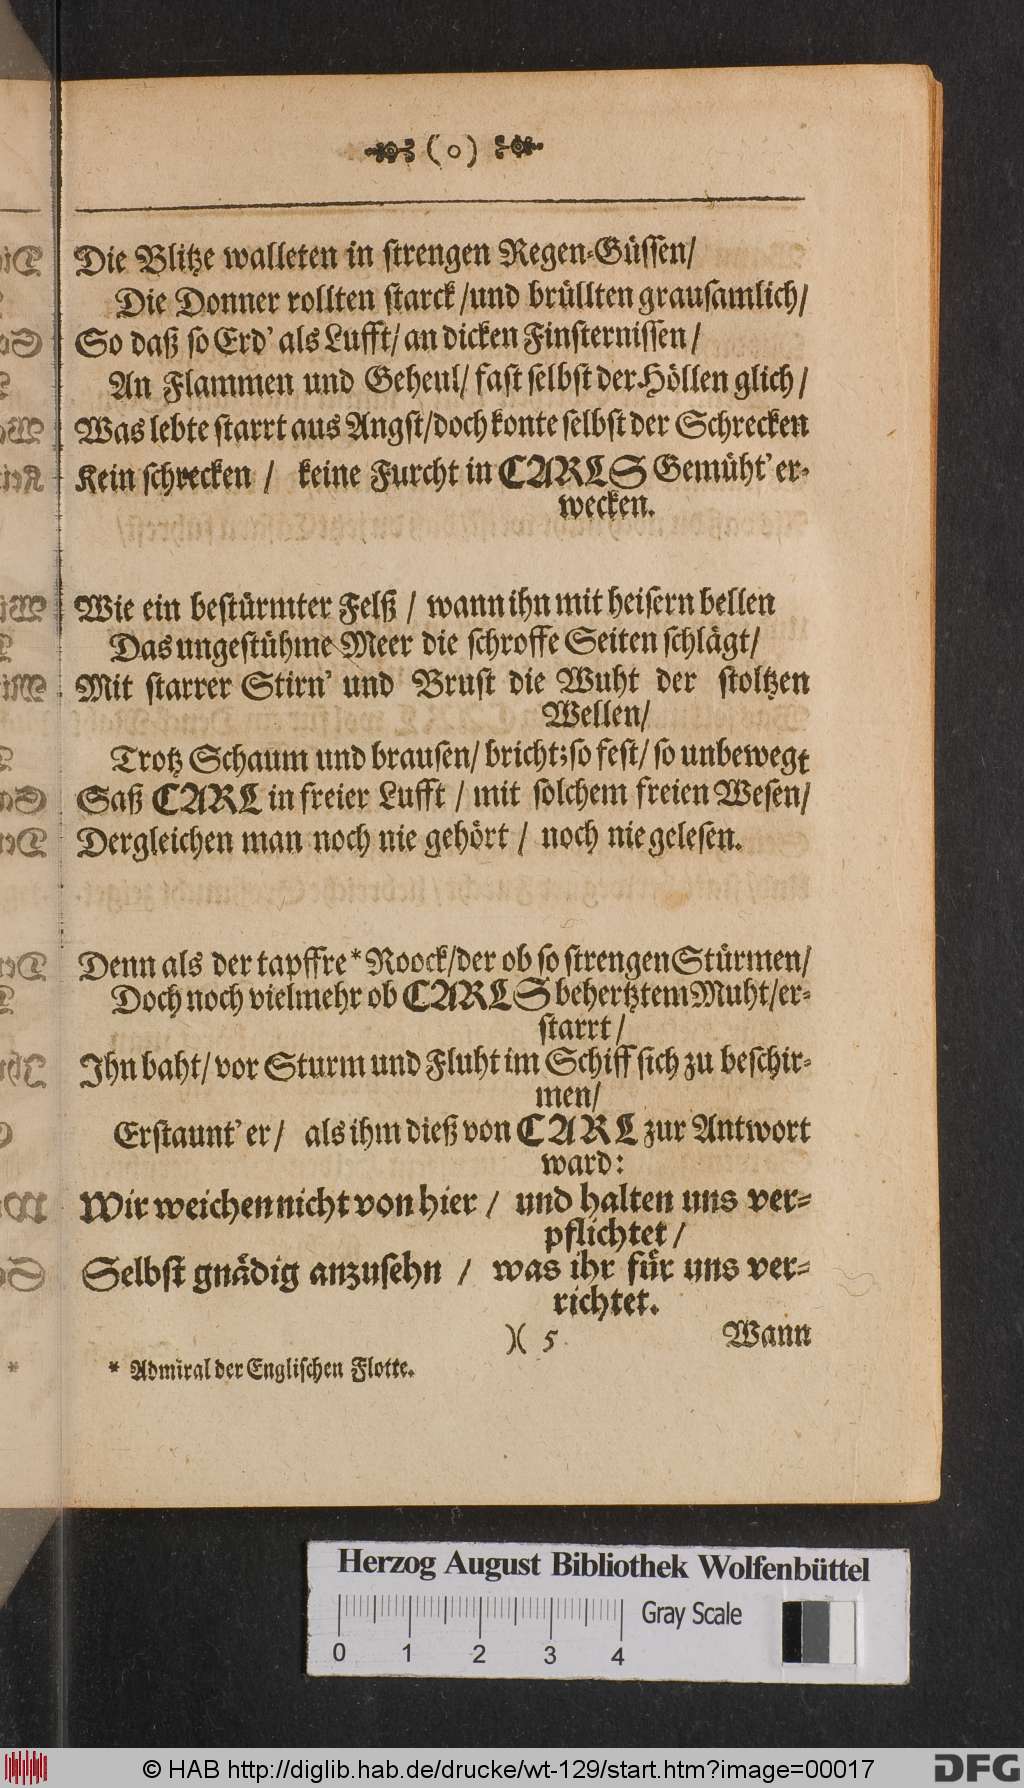 ( o )
Die Blitze walleten in strengen Regen-Güssen/
Die Donner rollten starck/und brüllten grausamlich/
So daß so Erd' als Lufft/ an dicken Finsternissen/
An Flammen und Geheul/ fast selbst der Höllen glich/
Was lebte starrt aus Angst/doch konte selbst der Schrecken
Kein schrecken / keine Furcht in CARLS Gemüht' er-
wecken.
Wie ein bestürmter Felß / wann ihn mit heisern bellen
Das ungestühme Meer die schroffe Seiten schlägt/
Mit starrer Stirn' und Brust die Wuht der stoltzen
Wellen/
Trotz Schaum und brausen/ bricht; so fest/ so unbewegt
Saß CARL in freier Lufft / mit solchem freien Wesen/
Dergleichen man noch nie gehört / noch nie gelesen.
Denn als der tapffre * Roock/der ob so strengen Stürmen/
Doch noch vielmehr ob CARLS behertztem Muht/er-
starrt/
Ihn baht/ vor Sturm und Fluht im Schiff sich zu beschir-
men/
Erstaunt' er/ als ihm dieß von CARL zur Antwort
ward:
Wir weichen nicht von hier / und halten uns ver-
pflichtet /
Selbst gnädig anzusehn / was ihr für uns ver-
richtet.
)( 5 Wann
* Admiral der Englischen Flotte.
Herzog August Bibliothek Wolfenbüttel
Gray Scale
0 1 2 3 4
© HAB http://diglib.hab.de/drucke/wt-129/start.htm?image=00017
DFG